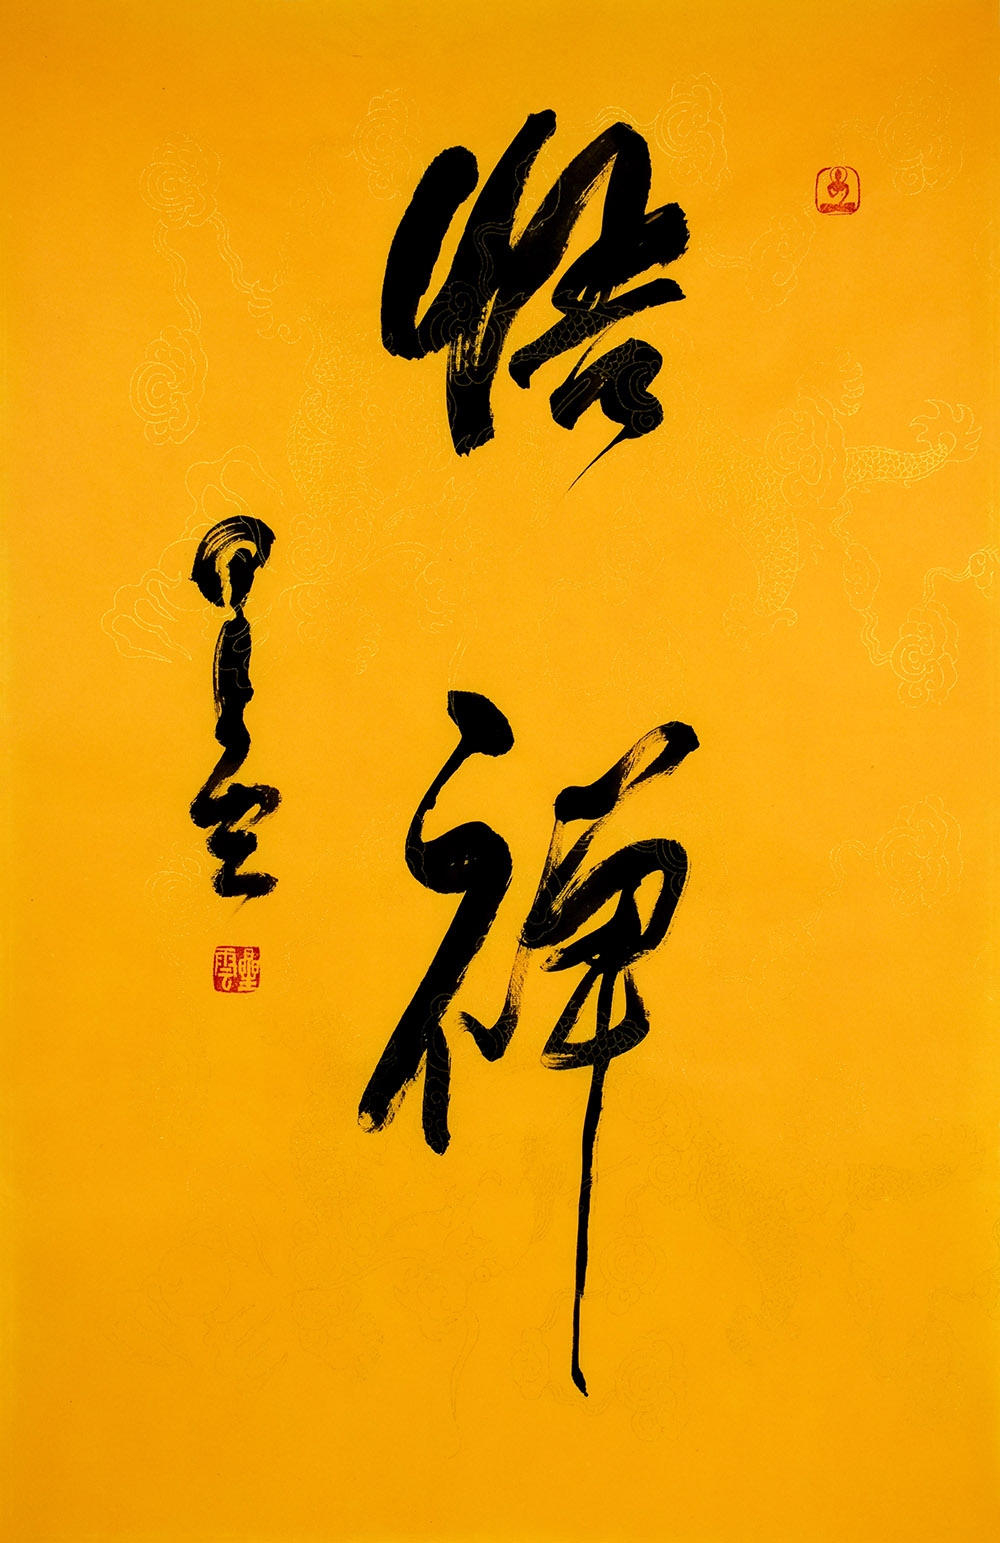 悟禪
星雲
星雲